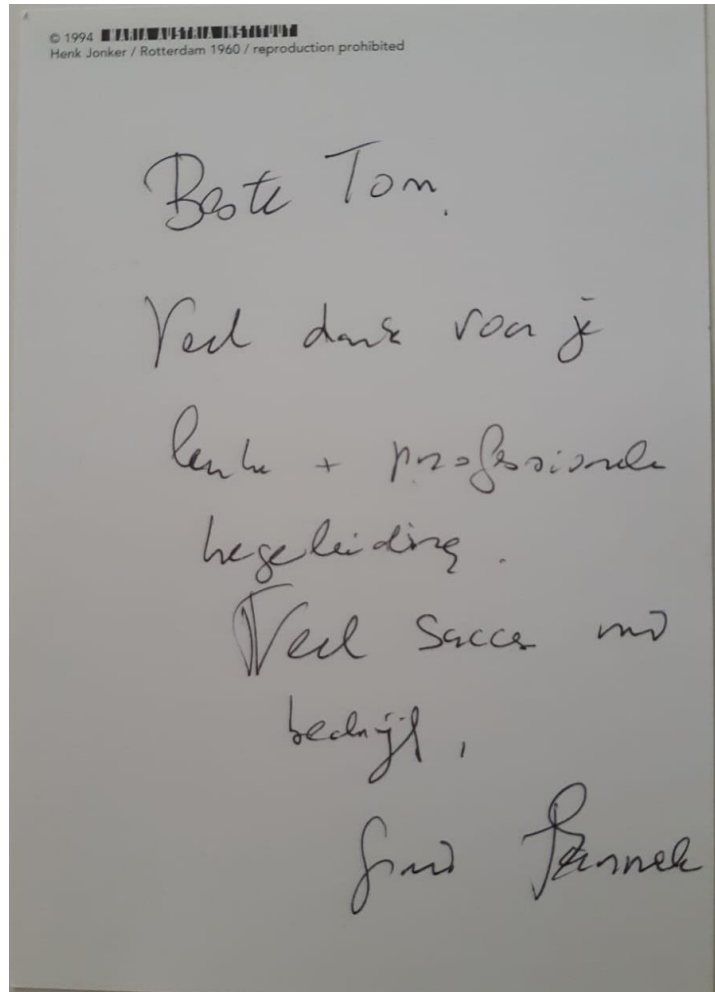 © 1994 MARIA AUSTRIA INSTITUUT
Henk Jonker / Rotterdam 1960 / reproduction prohibited
Beste Tom,
Veel dank voor je
leuke + professionele
begeleiding.
Veel succes met
bedrijf,
groet